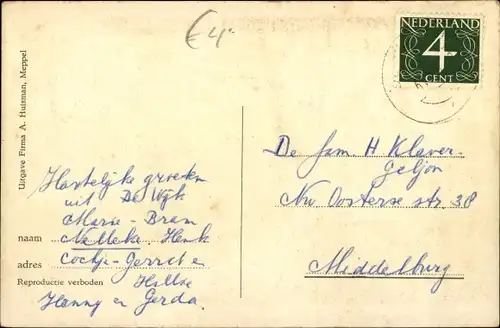 €4.
NEDERLAND
4
CENT
Uitgave Firma A. Huisman, Meppel
De fam H Klaver-
Geljon
Nw. Oosterse str. 38
Middelburg
Hartelijke groeten
uit De Wijk
Marie - Bram
naam Nelleke, Henk
adres Cockje - Gerret e
Reproductie verboden
Hanny en Gerda.